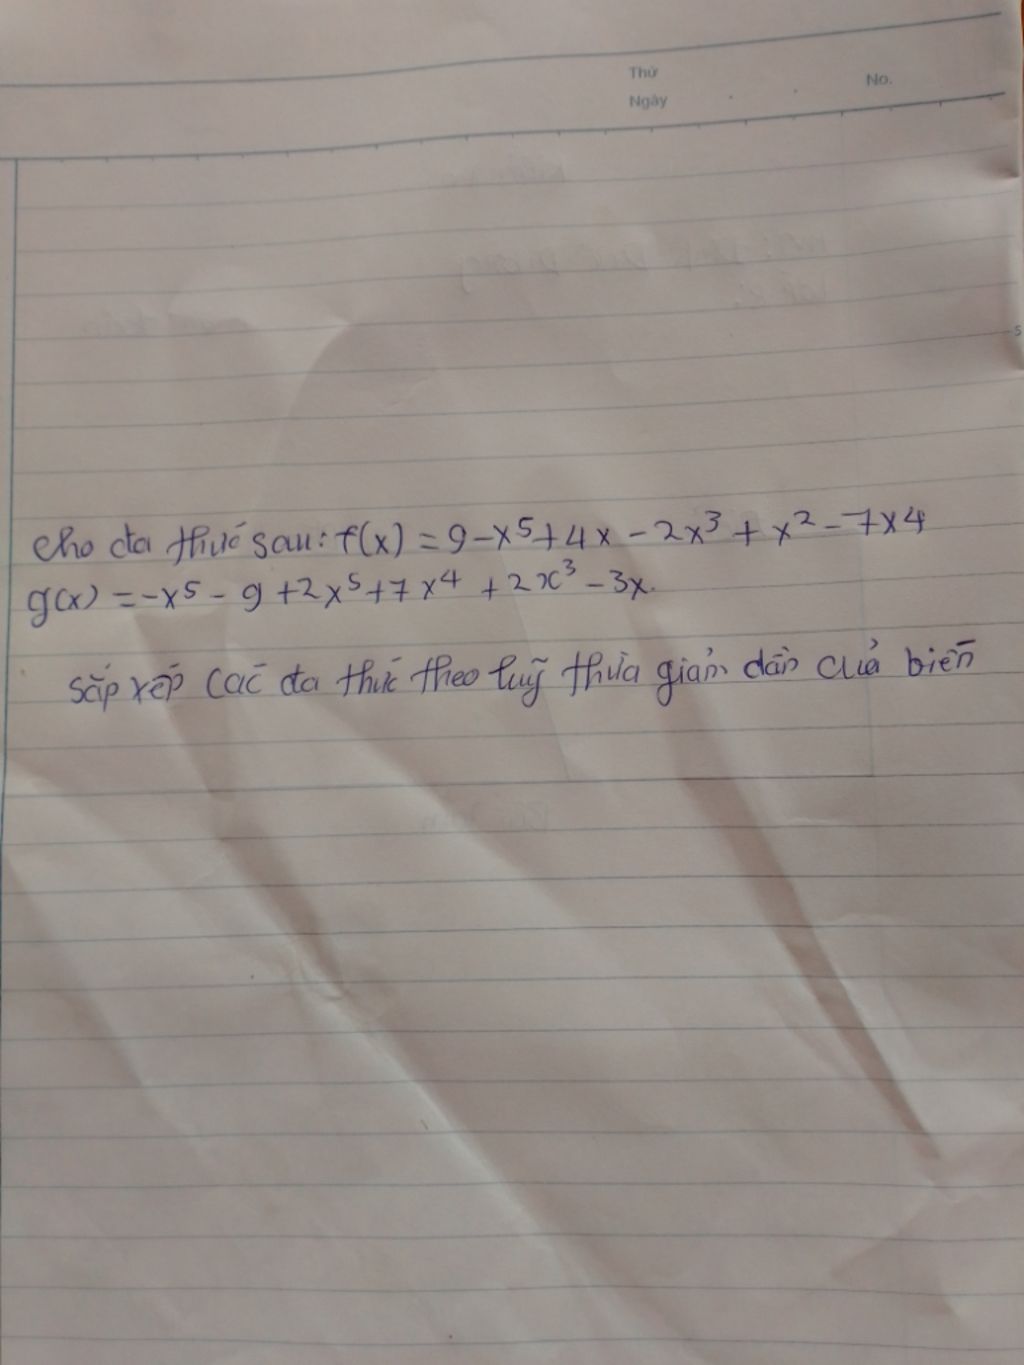 Thứ
Ngày
No.
Cho đa thức sau: f(x) = 9 - x⁵ + 4x - 2x³ + x² - 7x4
g(x) = -x⁵ - 9 + 2x⁵ + 7x⁴ + 2x³ - 3x.
sắp xếp các đa thức theo luỹ thừa giảm dần của biến
5